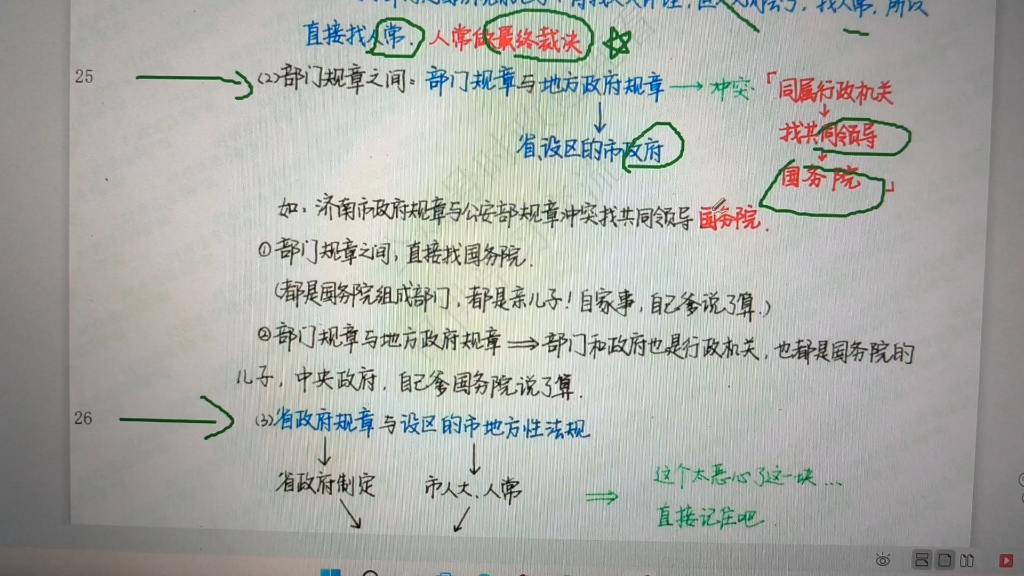 直接找人常.人常做最终裁决
25
(2)部门规章之间:部门规章与地方政府规章→冲突「同属行政机关
找共同领导
省、设区的市政府
国务院」
如:济南市政府规章与公安部规章冲突找共同领导国务院.
①部门规章之间,直接找国务院.
(都是国务院组成部门,都是亲儿子!自家事,自己爹说了算.)
②部门规章与地方政府规章⇒部门和政府也是行政机关,也都是国务院的
儿子,中央政府,自己爹国务院说了算.
26
(3)省政府规章与设区的市地方性法规
省政府制定 市人大、人常 ⇒ 这个太恶心了这一块...
直接记住吧.